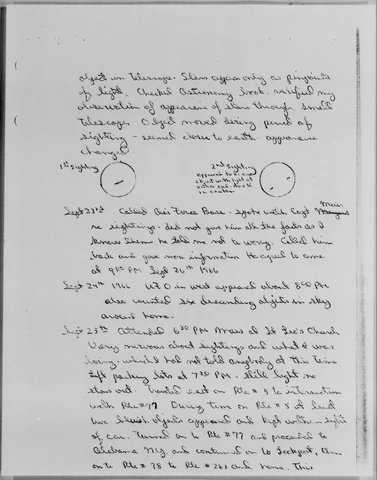 object in Telescope. Stars appear only as pinpoints
of light. Checked Astronomy book - verified my
observation of appearance of stars through small
Telescope. Object moved during period of
sighting - seemed closer to earth appearance
changed
1st sighting
2nd sighting
appeared to be
object with light at
on center
Sept 23rd Called Air Force Base - spoke with Capt
re sightings - did not give him all the facts as I
knew them he told me not to worry. Called him
back and gave more information He agreed to come
at 9:00 PM Sept 26th 1966
Sept 24th 1966 UFO in west appeared about 8:00 PM
also counted six descending objects in sky
around home.
Sept 25th Attended 6:30 PM Mass at St Leo's Church
Very nervous about sightings and what I was
had not told anybody at this time
Left parking lot at 7:20 PM - still light no
stars out. Traveled east on Rte # 5 to intersection
with Rte # 77 During time on Rte # 5 at least
two objects appeared and kept within sight
of car. Turned on to Rte # 77 and proceeded to
Alabama NY. and continued on to Lockport, then
on to Rte # 78 to Rte # 263 and home. This